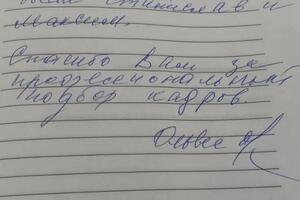 Станислав и
Максим.
Спасибо Вам за
профессиональный
подбор кадров.